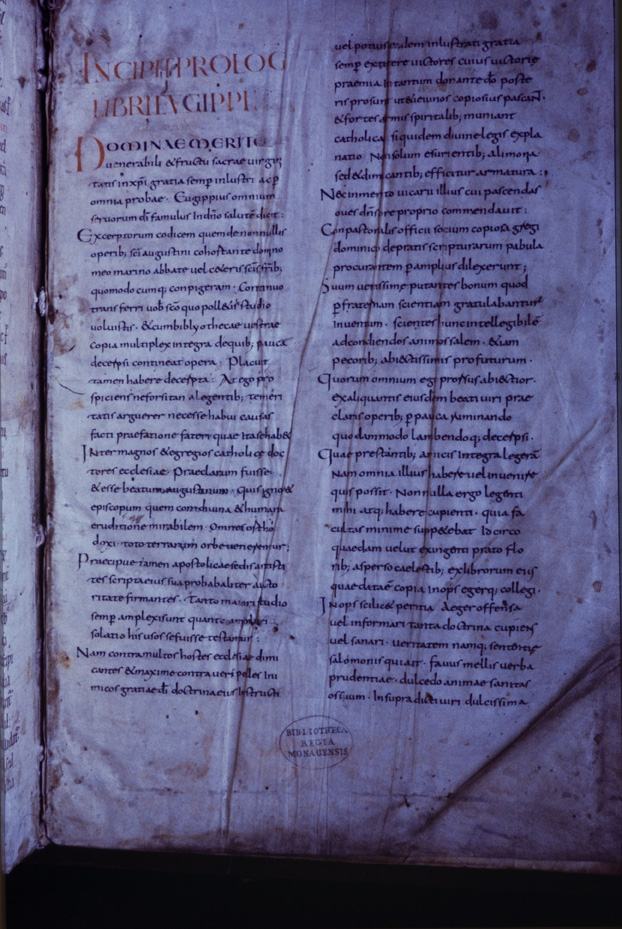 INCIPIT PROLOG
LIBRI EVGIPPI
DOMINAE MERITO
uenerabili & fructu sacrae uirgi
tatis in xpi gratia semp inlustri ac p
omnia probae · Eugippius omnium
seruorum di famulus Indño salutē dicit :
Excerptorum codicem quem de nonnullis
operib; sci augustini cohortante domno
meo marino abbate uel ceteris scis frīb;
quomodo cumq; conpigeram · Continuo
trans ferri uob sco quo poll&is studio
uoluistis · & cum bibly othecae uestrae
copia multiplex integra de quib; pauca
decerpsi contineat opera · Placuit
tamen habere decerpta : At ego pro
spiciens ne forsitan a legentib; temeri
tatis arguerer necesse habui causas
facti praefatione fateri quae Ita se hab&
Inter magnos & egregios catholice doc
tores ecclesiae · Praeclarum fuisse
& esse beatum augustinum · Quis ignor&
episcopum quem condiuina & humana
eruditione mirabilem · Omnes ortho
doxi · toto terrarum orbe uenerentur ;
Praecipue tamen apostolicae sedis antisti
tes scripta eius sua probabiliter aucto
ritate firmantes · Tanto maiori studio
semp amplexi sunt quanto
solatio his usos se fuisse testantur :
Nam contra multos hostes ecclesiae dimi
cantes & maxime contra ueri pelles Ini
micos gratiae di doctrina eius Instructi
uel potius eadem inlustrati gratia
semp extitere uictores cuius uictorie
praemia In tantum donante dō poste
ris prosunt ut & ieiunos copiosius pascan̄ ·
& fortes armis spiritalib; muniant
catholica siquidem diuine legis expla
natio Non solum esurientib; alimonia
sed & dimicantib; efficitur armatura :
Nec inmerito uicarii illius cui pascendas
oues dn̄s pre proprio commendauit :
Con pastoralis officii socium copiosa gregi
dominico de pratis scripturarum pabula
procurantem p amplius dilexerunt ;
Suum uerissime putantes bonum quod
p fratrē nam scientiam gratulabantur
Inuentum · scientes hunc intellegibile
ad condiendos animos salem · & iam
pecorib; abiectissimis profuturum ·
Quorum omnium ego prorsus abiectior
ex aliquantis eiusdem beati uiri prae
claris operib; p pauca ruminando
quodammodo lambendoq; decerpsi ·
Quae prestantib; amicis Integra legerā
Nam omnia illius habere uel inuenire
quis possit · Non nulla ergo legenti
mihi atq; habere cupienti · quia fa
cultas minime suppetebat Id circo
quaedam uelut ex ingenti prato flo
rib; asperso caelestib; ex librorum eius
quae datae copia Inops egerq; collegi ·
Inops scilic& peritia Aeger offensa
uel informari tanta doctrina cupiens
uel sanari · ueritatem namq; sententie
salomonis qui ait · fauus mellis uerba
prudentiae · dulcedo animae sanitas
ossuum · In supra dicti uiri dulcissima
BIBLIOTHECA
REGIA
MONACENSIS